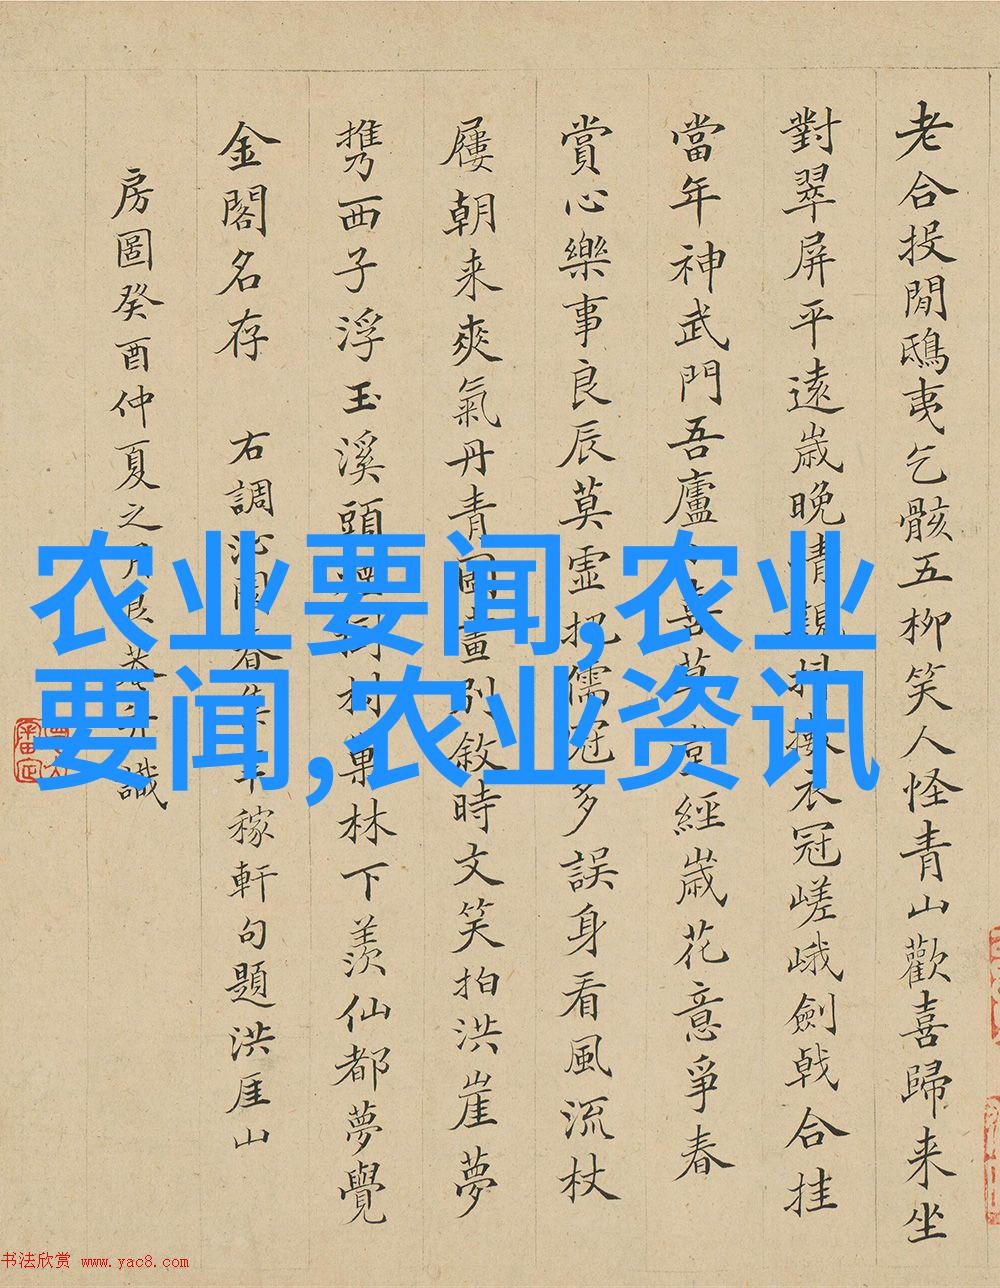 老合投閒鴟夷乞骸五柳笑人怪青山歡喜歸来坐
對翠屏平遠歲晚青衣冠嵯峨劍戟合挂
當年神武門吾廬喜草經歲花意爭春
賞心樂事良辰莫虚把儒冠多誤身看風流杖
屨朝来爽氣丹青圖畫別敘時文笑拍洪崖夢
携西子浮玉溪頭村菓林下羨仙都夢覺
金閣名存 右調沁園春集辛稼軒句題洪厓山
房圖癸酉仲夏之月識
农业要闻,农业
要闻,农业资讯
书法欣赏 www.yac8.com